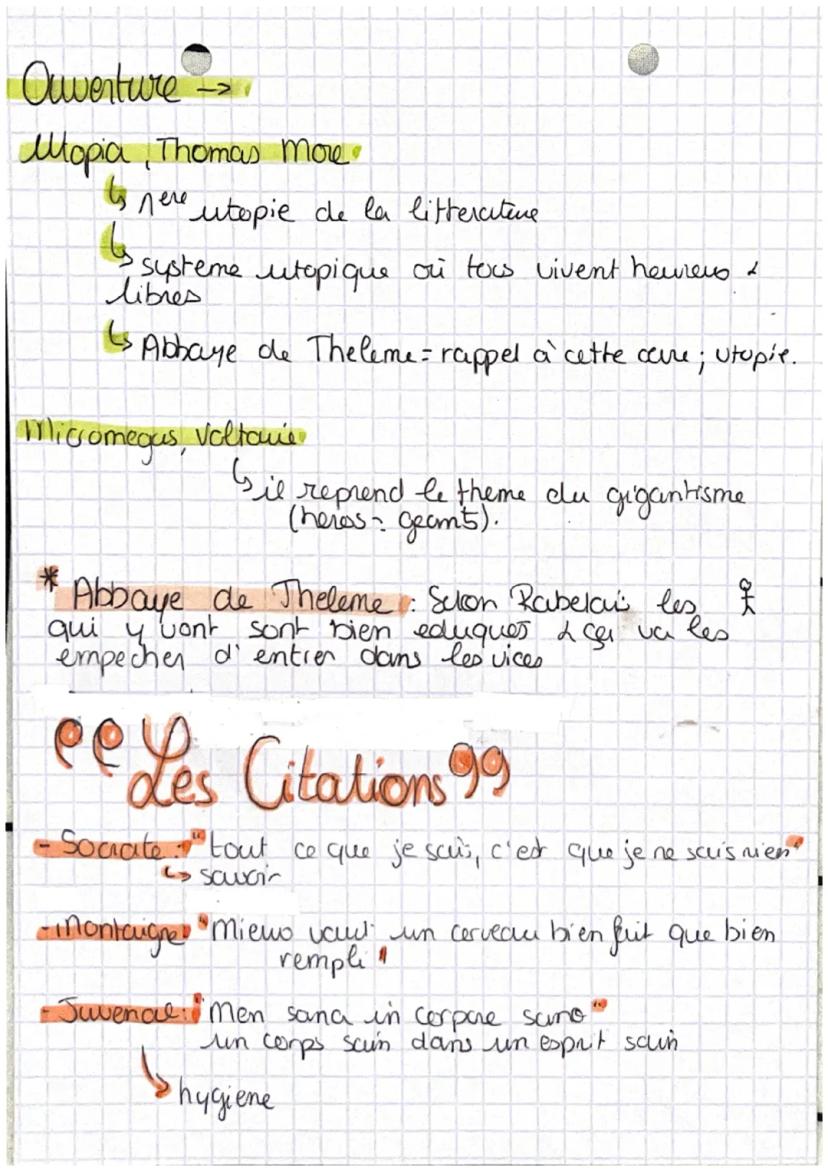 Ouverture ->
Utopia, Thomas More
↳ 1ere utopie de la litterature
↳ systeme utopique où tous vivent heureux &
libres
↳ Abbaye de Theleme = rappel à cette œuvre ; utopie.
Micromegas, Voltaire
↳ il reprend le theme du gigantisme
(heros = geants).
* Abbaye de Theleme : Selon Rabelais les
qui y vont sont bien eduques & ça va les
empecher d'entrer dans les vices
“Les Citations”
- Socrate : "tout ce que je sais, c'est que je ne sais rien"
↳ savoir
- Montaigne "Mieux vaut un cerveau bien fait que bien
rempli"
- Juvenal : "Men sana in corpore sano"
un corps sain dans un esprit sain
↳ hygiene